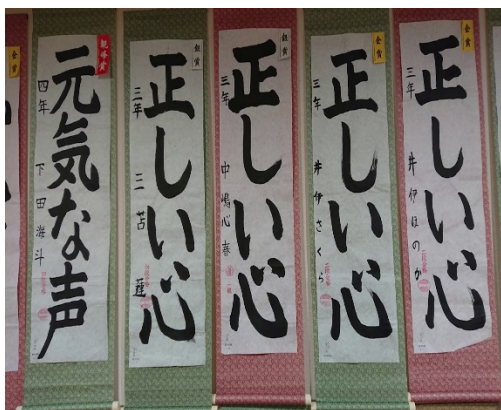 金賞
正しい心
三年 井伊ほのか
金賞
正しい心
三年 井伊さくら
銀賞
正しい心
三年 中嶋心春
銀賞
正しい心
三年 三苫 蓮
元気な声
四年 下田海斗
金賞